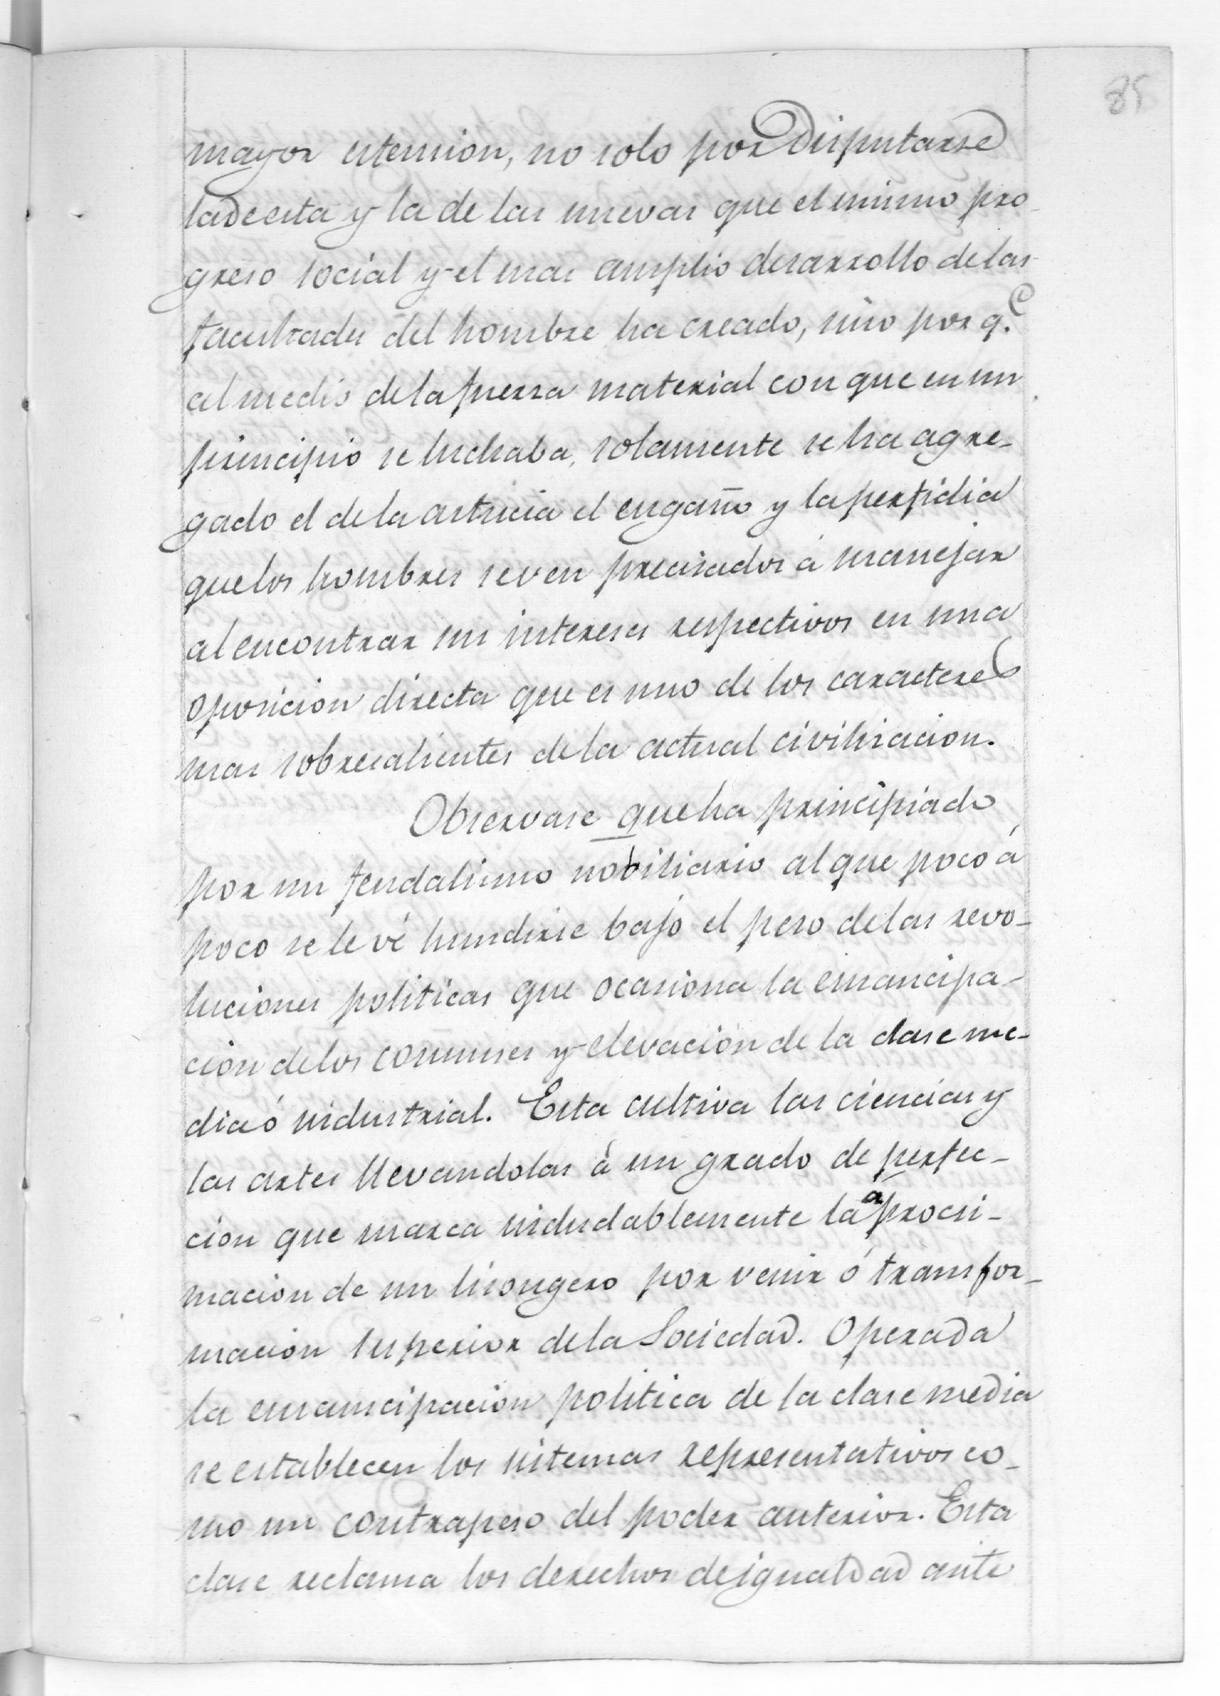 85
mayor estension, no solo por Disputarse
la de esta y la de las nuevas que el mismo pro-
greso social y el mas amplio desarrollo de las
facultades del hombre ha creado, sino por q.e
al medio de la fuerza material con que en un
principio se luchaba, solamente se ha agre-
gado el de la astucia el engaño y la perfidia
que los hombres se ven precisados á manejar
al encontrar sus intereses respectivos en una
oposicion directa que es uno de los caracteres
mas sobresalientes de la actual civilisacion.
Observase que ha principiado
por un feudalismo nobiliario al que poco á
poco se le vé hundirse bajo el peso de las revo-
luciones politicas que ocasiona la emancipa-
cion de los comunes y elevacion de la clase me-
dia ó industrial. Esta cultiva las ciencias y
las artes llevandolas á un grado de perfec-
cion que marca indudablemente la aprocsi-
macion de un lisongero por venir ó transfor-
macion superior de la Sociedad. Operada
la emancipacion politica de la clase media
se establecen los sistemas representativos co-
mo un contrapeso del poder anterior. Esta
clase reclama los derechos de igualdad ante